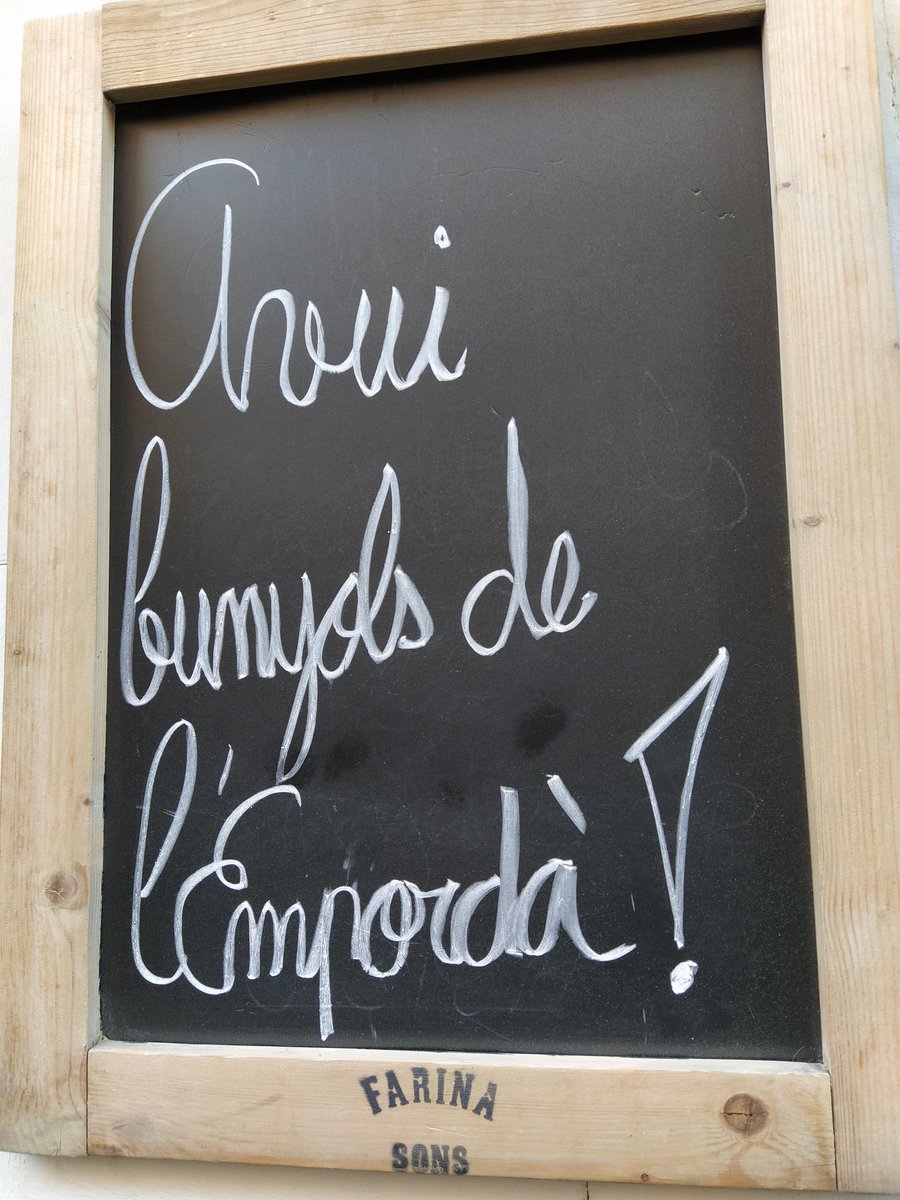 Avui
bunyols de
l'Empordà!
FARINA
SONS